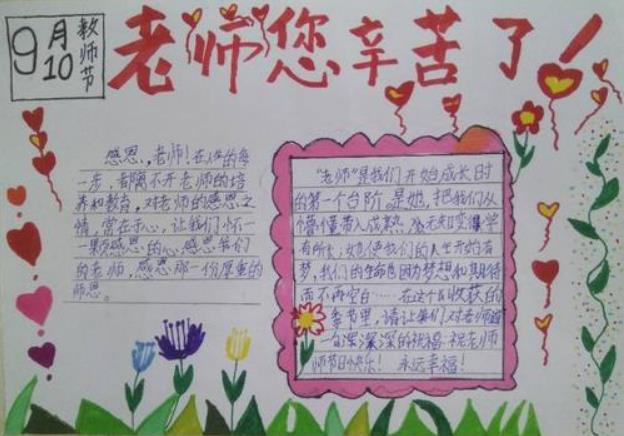 9月10
教师节
老师您辛苦了！
感恩，老师！在人生的每
一步，都离不开老师的培
养和教育，对老师的感恩之
情，常在于心，让我们怀一
一颗感恩的心，感恩我们
的老师，感恩那一份厚重的
师恩。
“老师”是我们开始成长时
的第一个台阶，是她，把我们从
懵懂带入成熟，从无知变得学
有所长；她使我们的人生开始有
梦，我们的生命也因为梦想和期待
而不再空白……在这个收获的
季节里，请让我们对老师道
一句深深深的祝福：祝老师
师节日快乐！ 永远幸福！